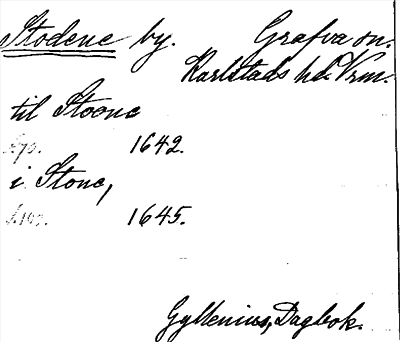 Stodene by. Grafva sn.
Karlstads hd. Vrm.
til Stoene
s. 70. 1642.
i Stone,
s. 107. 1645.
Gyllenius, Dagbok.